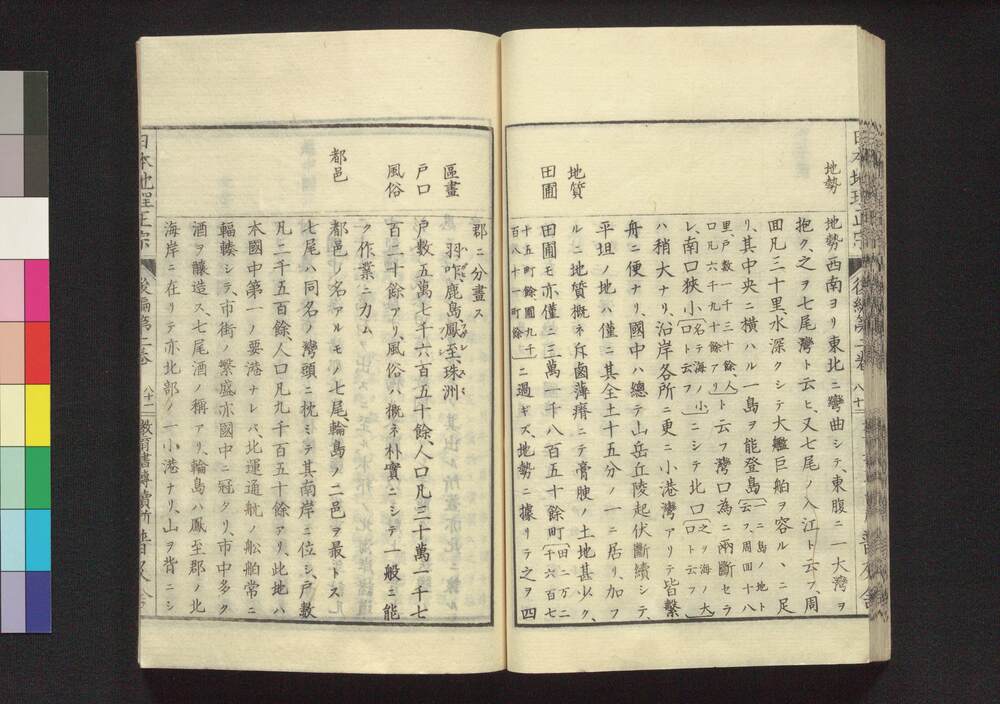 地勢
地勢西南ヨリ東北ニ彎曲シテ、東腹ニ一大灣ヲ
抱ク、之ヲ七尾灣ト云ヒ、又七尾ノ入江ト云フ、周
回凡三十里、水深クシテ大艦巨舶ヲ容ルヽニ足
リ、其中央ニ橫ハル一島ヲ能登島(一ニ島ノ地ト云フ、周四十八
里、戸數一千三十餘、人口凡六千九十餘アリ)ト云フ灣口爲ニ兩斷セラ
レ、南口狹小(名テ海ノ小口ト云フ)ニシテ北口(之ヲ海ノ大口ト云フ)
ハ稍大ナリ、沿岸各所ニ更ニ小港灣アリテ皆繫
舟ニ便ナリ、國中ハ總テ山岳丘陵起伏斷續シテ、
平坦ノ地ハ僅ニ其全土十五分ノ一ニ居リ、加フ
地質
ルニ地質槪ネ斥鹵薄瘠ニテ膏腴ノ土地甚少ク、
田圃
田圃モ亦僅ニ三萬一千八百五十餘町(田二万二千六百七
十五町餘圃九千百八十一町餘)ニ過ギズ、地勢ニ據リテ之ヲ四
郡ニ分畫ス
區畫
羽咋鹿島鳳至珠洲
戸口
戸數五萬七千六百五十餘、人口凡三十萬一千七
風俗
百二十餘アリ、風俗ハ槪ネ朴實ニシテ一般ニ能
ク作業ニ力ム
都邑
都邑ノ名アルモノ七尾、輪島ノ二邑ヲ最トス
七尾ハ同名ノ灣頭ニ枕ミテ其南岸ニ位シ、戸數
凡二千五百餘、人口凡九千百五十餘アリ、此地ハ
本國中第一ノ要港ナレバ、北運通航ノ舩舶常ニ
輻輳シテ、市街ノ繁盛亦國中ニ冠タリ、市中多ク
酒ヲ釀造ス、七尾酒ノ稱アリ、輪島ハ鳳至郡ノ北
海岸ニ在リテ亦北部ノ一小港ナリ、山ヲ背ニシ
日本地理正宗
後編第二卷
八十二
教育書專賣所